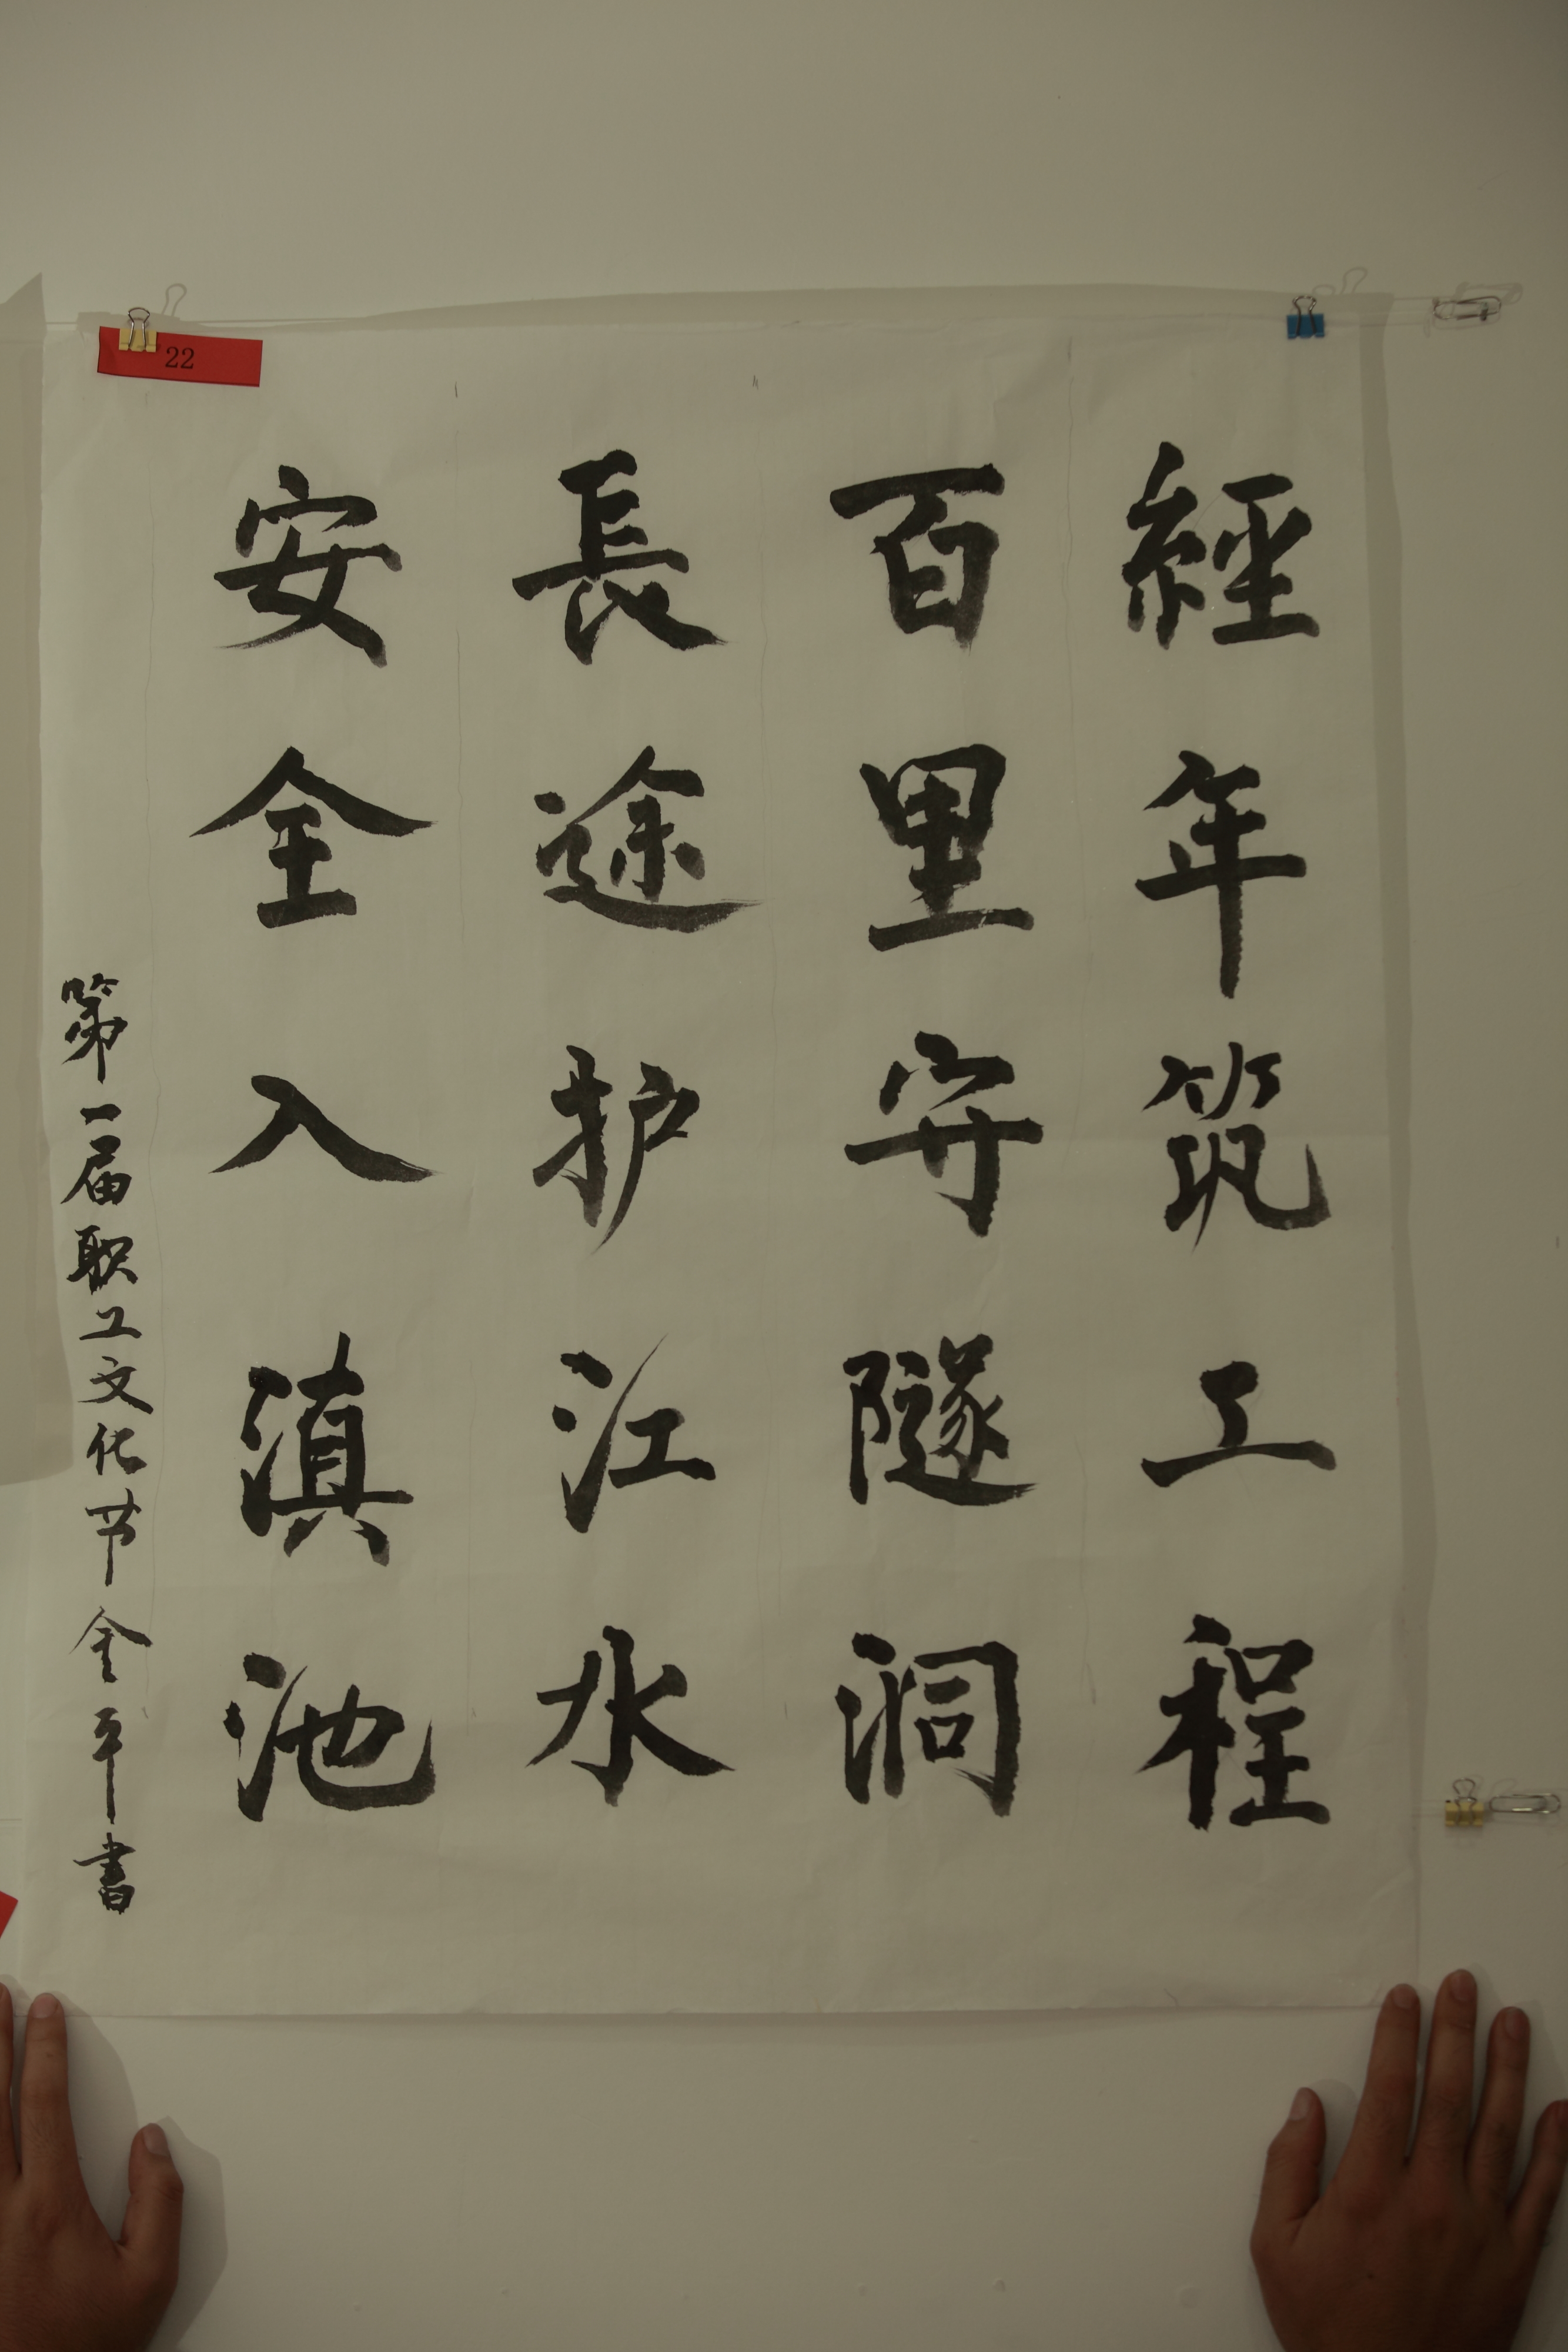 經年筑工程
百里守隧洞
長途护江水
安全入滇池
第一届职工文化节金平书
22